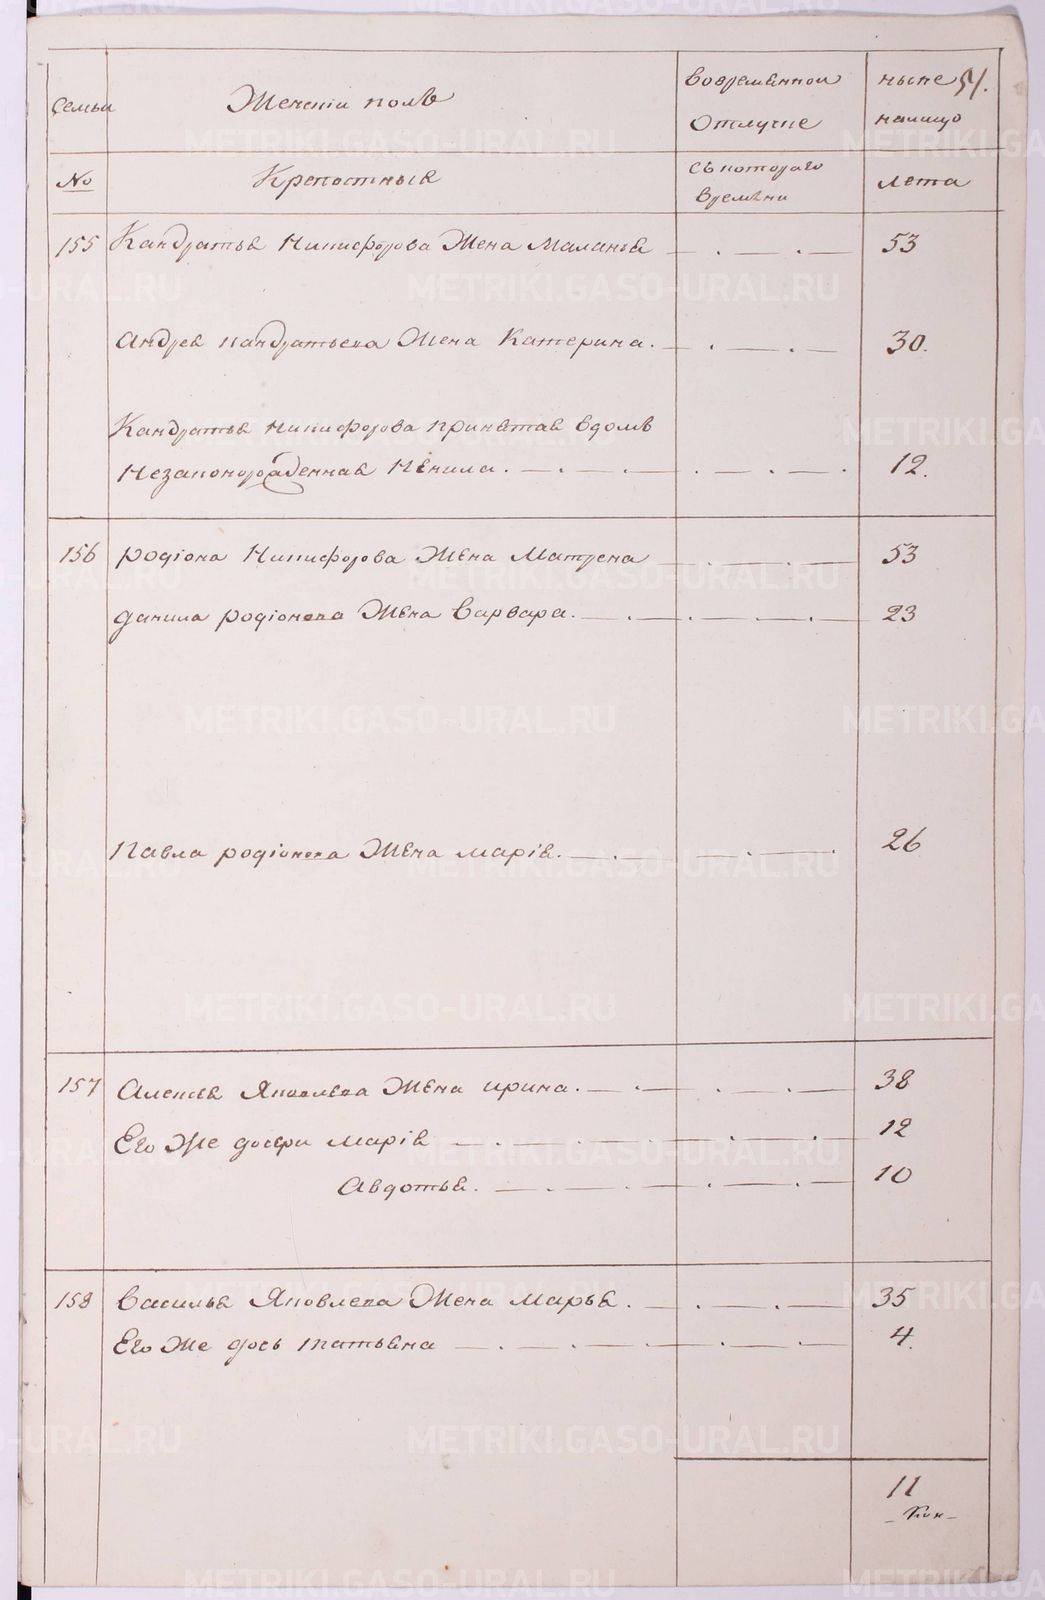 семьи Женскій полъ во временной ныне 51.
Отлучке налицо
№ Крепостныя съ котораго лета
времѣни
155 Кандратья Никифорова Жена Маланья 53
Андрея кандратьева Жена Катерина. 30.
Кандратья Никифорова принятая вдомъ
Незаконорожденная Ненила. 12.
156 родіона Никифорова Жена Матрена 53
данила родіонова Жена Варвара. 23
Павла родіонова Жена марія. 26
157 Алексея Яковлева Жена ирина. 38
Его Же дочери марія 12
Авдотья. 10
158 Василья Яковлева Жена марья. 35
Его Же дочь татьяна 4.
11
METRIKI.GASO-URAL.RU